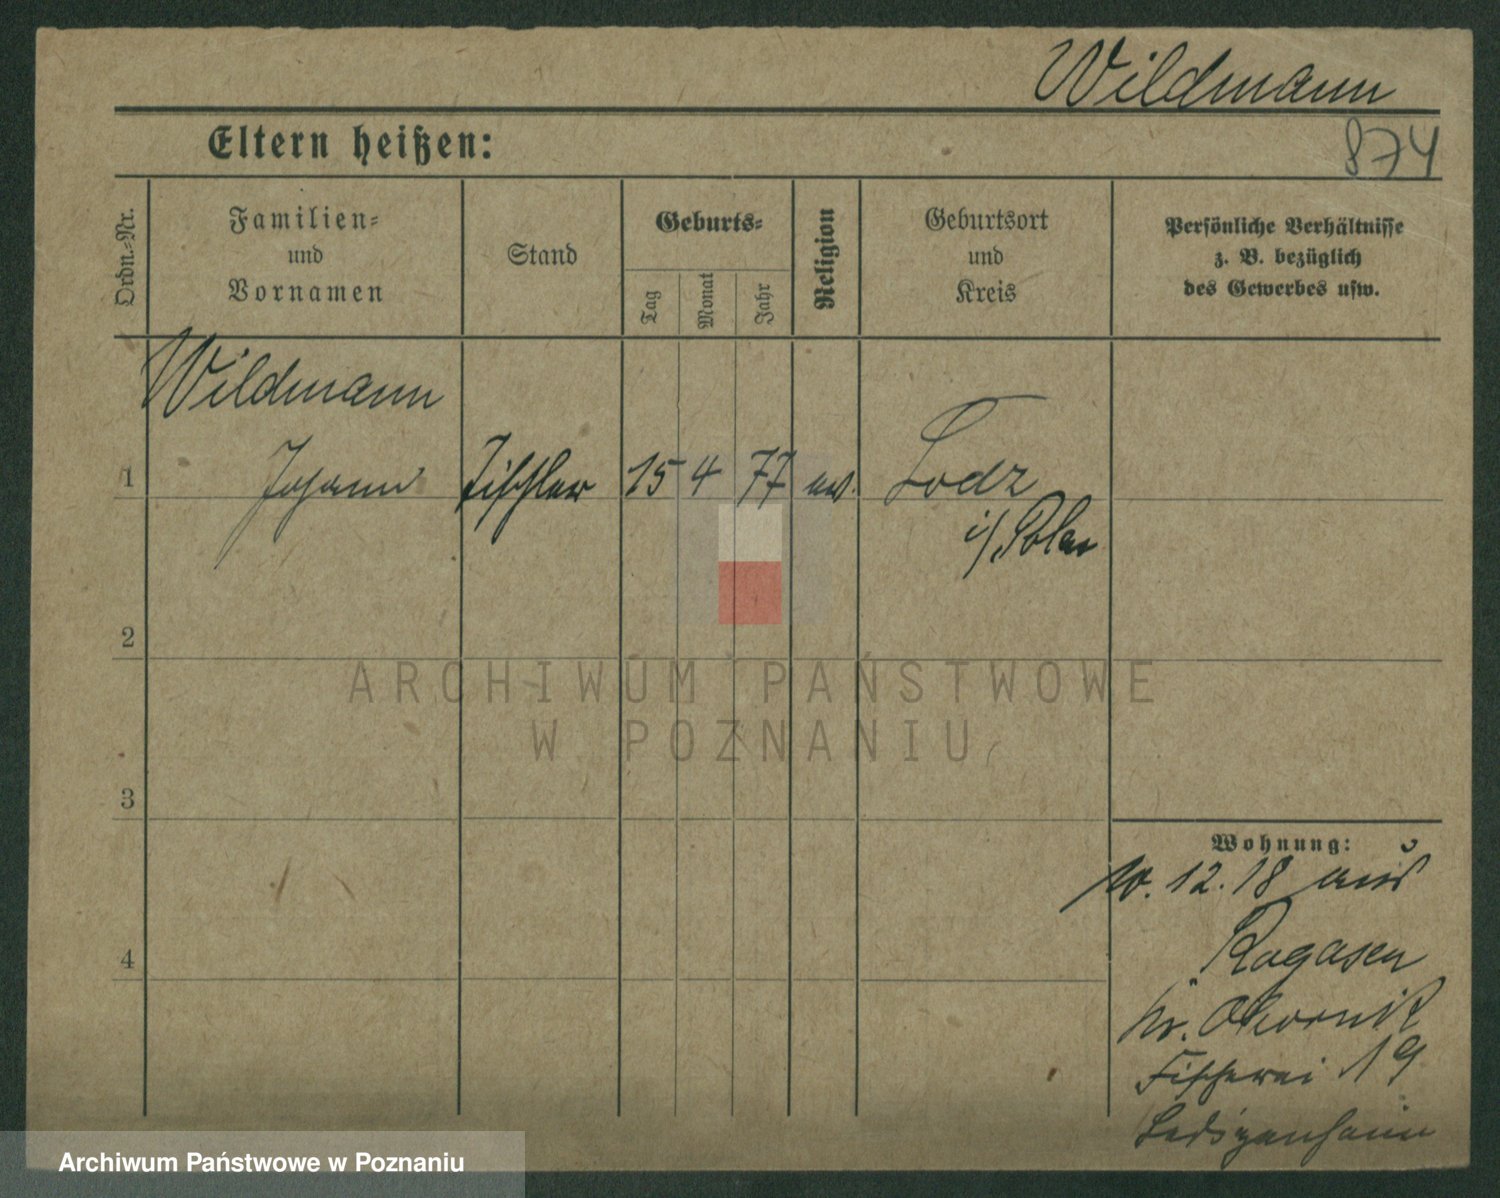 Wildmann
874
Eltern heißen:
Ordn.=Nr.
Familien=
und
Vornamen
Stand
Geburts=
Tag
Monat
Jahr
Religion
Geburtsort
und
Kreis
Persönliche Verhältnisse
z. B. bezüglich
des Gewerbes usw.
Wildmann
1 Johann Tischler 15 4 77 ev. Lodz
i/Polen
2
ARCHIWUM PAŃSTWOWE
W POZNANIU
3
Wohnung:
10.12.18 aus
Rogasen
Kr. Obornik
Fischerei 19
Ledigenheim
4
Archiwum Państwowe w Poznaniu